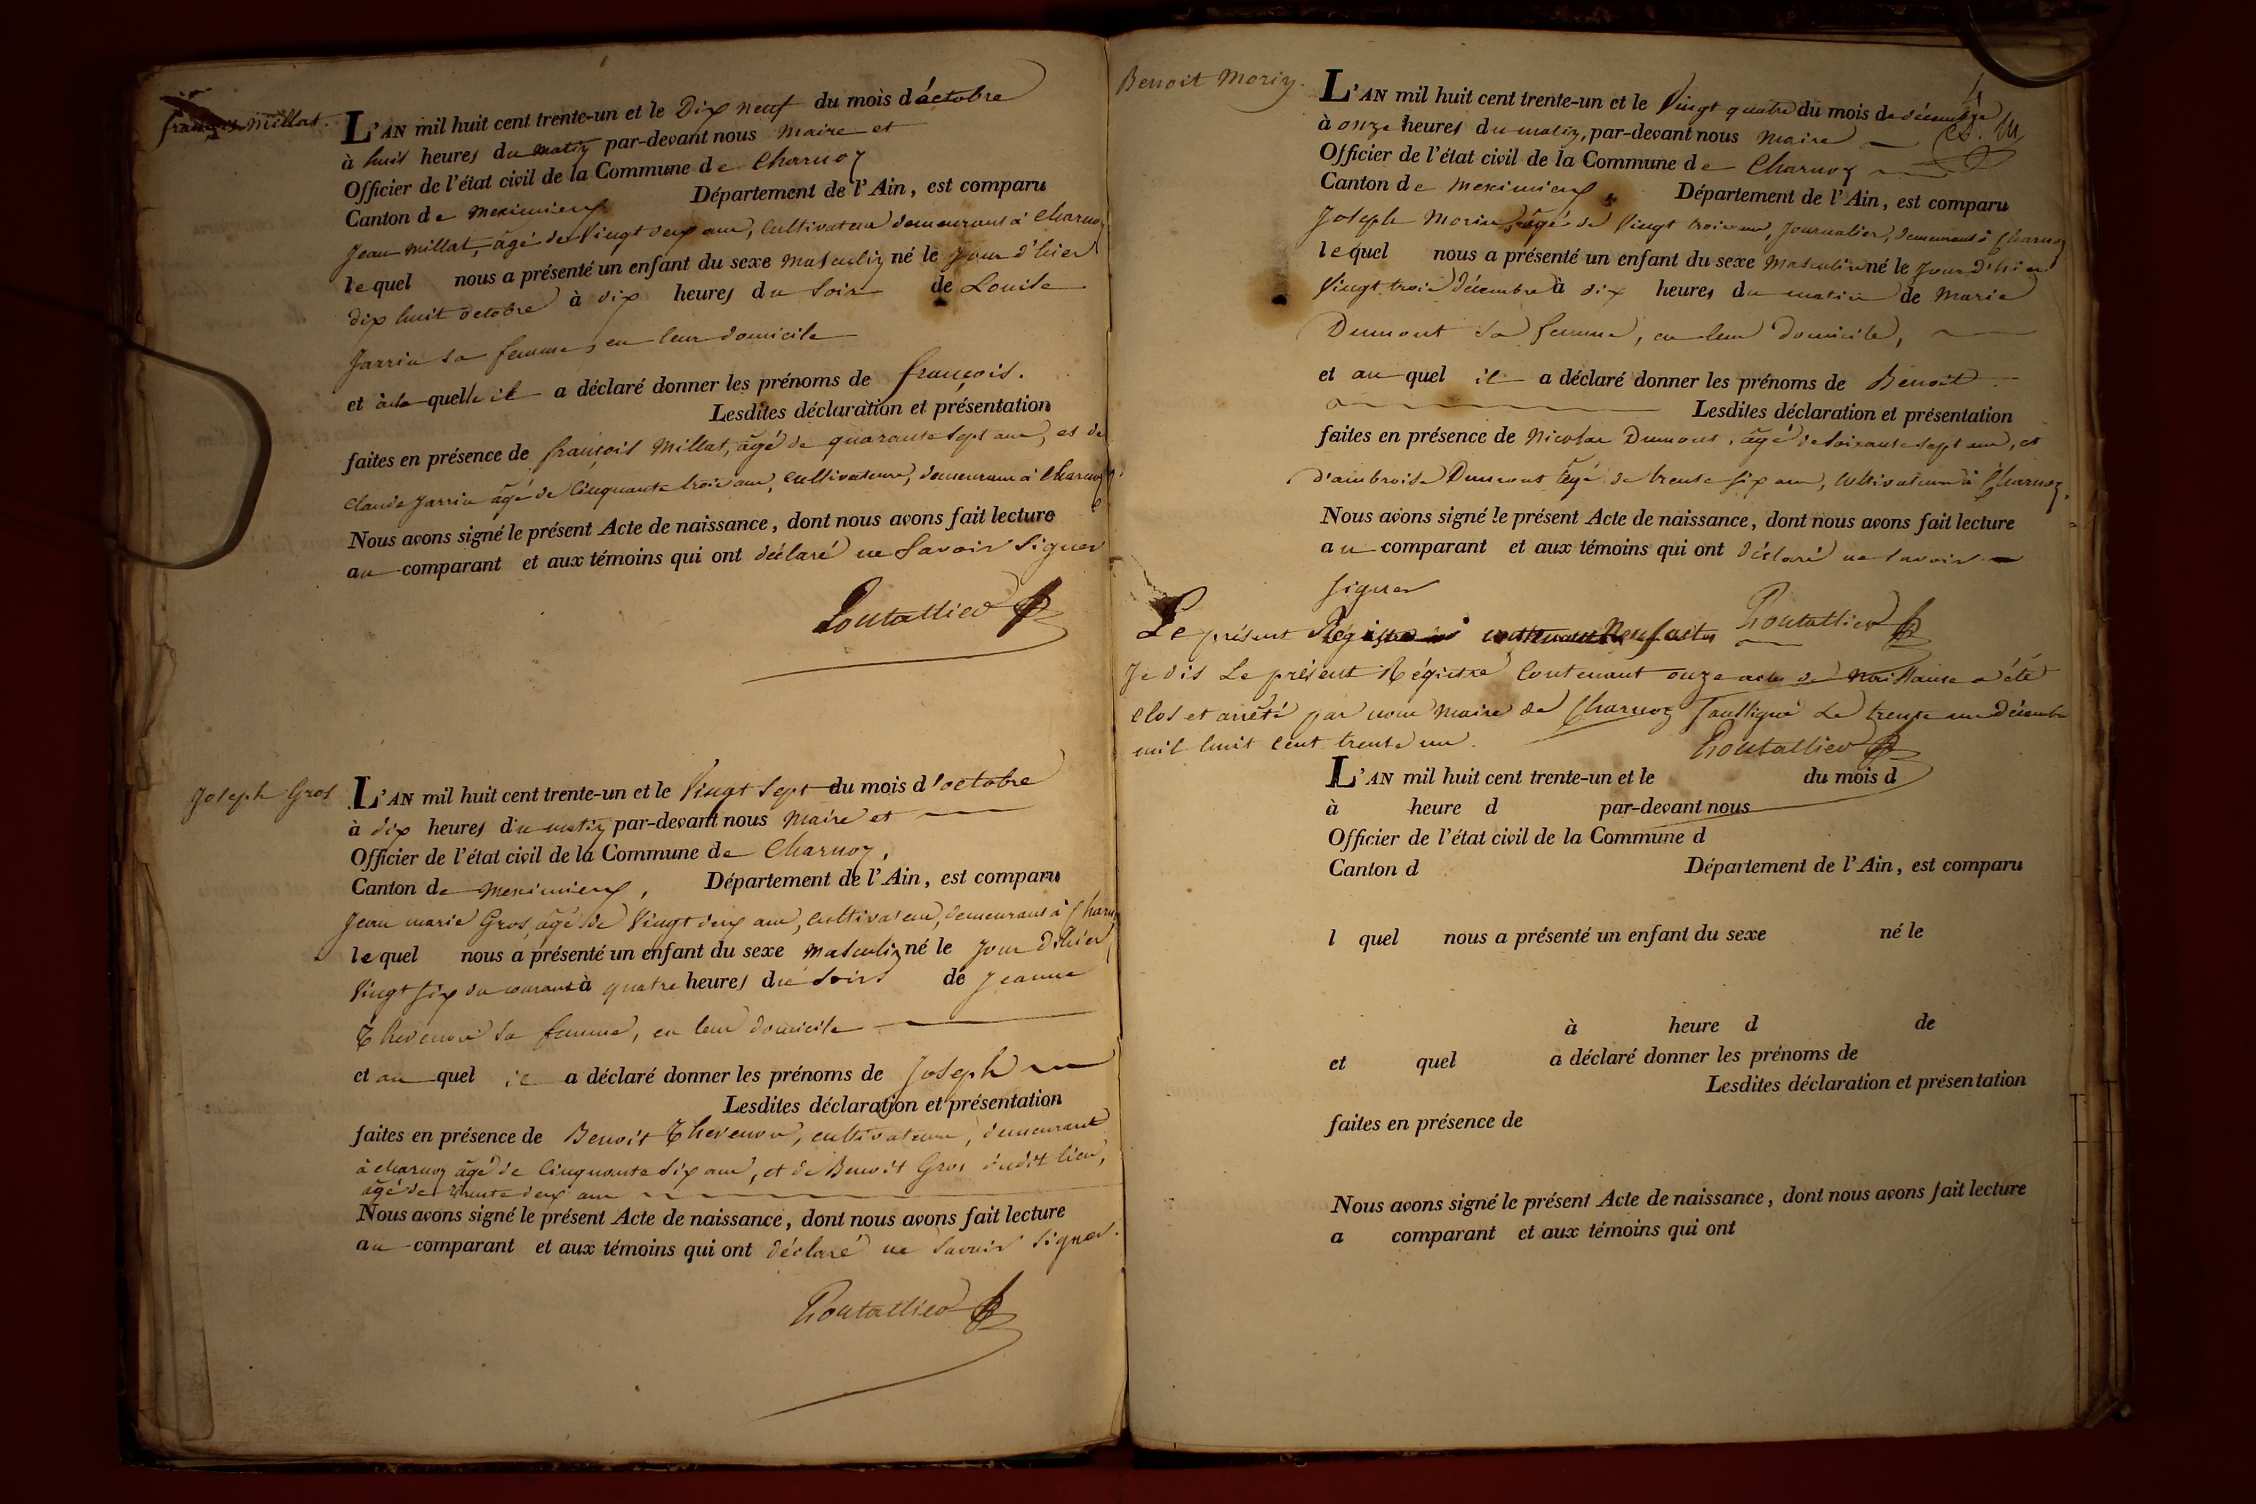 françois Millat.
L'AN mil huit cent trente-un et le Dix neuf du mois d'octobre
à huit heures du matin par-devant nous Maire et
Officier de l'état civil de la Commune de Charnoz
Canton de Meximieux Département de l'Ain, est comparu
Jean Millat, âgé de Vingt deux ans, Cultivateur demeurant à Charnoz
lequel nous a présenté un enfant du sexe Masculin né le Jour d'hier
dix huit octobre à dix heures du Soir de Louise
Jarrin sa femme, en leur domicile
et à la quelle il a déclaré donner les prénoms de françois.
Lesdites déclaration et présentation
faites en présence de françois Millat, âgé de quarante sept ans, et de
Claude Jarrin âgé de Cinquante trois ans, Cultivateurs, demeurant à Charnoz
Nous avons signé le présent Acte de naissance, dont nous avons fait lecture
au comparant et aux témoins qui ont déclaré ne Savoir Signer
Joseph Gros
L'AN mil huit cent trente-un et le Vingt Sept du mois d'octobre
à dix heures du matin par-devant nous Maire et
Officier de l'état civil de la Commune de Charnoz,
Canton de Meximieux, Département de l'Ain, est comparu
Jean marie Gros, âgé de Vingt deux ans, Cultivateur, demeurant à Charnoz
lequel nous a présenté un enfant du sexe Masculin né le Jour d'hier
Vingt Six du courant à quatre heures du Soir de Jeanne
Thevenon sa femme, en leur domicile
et au quel il a déclaré donner les prénoms de Joseph
Lesdites déclaration et présentation
faites en présence de Benoit Thevenon, cultivateur, demeurant
à Charnoz âgé de Cinquante Six ans, et de Benoit Gros dudit lieu,
âgé de trente deux ans
Nous avons signé le présent Acte de naissance, dont nous avons fait lecture
au comparant et aux témoins qui ont déclaré ne Savoir Signer.
Benoit Morin.
L'AN mil huit cent trente-un et le Vingt quatre du mois de décembre
à onze heures du matin, par-devant nous Maire
Officier de l'état civil de la Commune de Charnoz
Canton de Meximieux, Département de l'Ain, est comparu
Joseph Morin, âgé de Vingt trois ans, Journalier, demeurant à Charnoz
lequel nous a présenté un enfant du sexe Masculin né le Jour d'hier
Vingt trois décembre à dix heures du matin de Marie
Dumont sa femme, en leur domicile,
et au quel il a déclaré donner les prénoms de Benoit
Lesdites déclaration et présentation
faites en présence de Nicolas Dumont, âgé de Soixante Sept ans, et
d'ambroise Dumont âgé de trente six ans, Cultivateurs à Charnoz,
Nous avons signé le présent Acte de naissance, dont nous avons fait lecture
au comparant et aux témoins qui ont déclaré ne Savoir
signer
Le présent Régistre contenant Neuf actes
Je dis Le présent Régistre Contenant onze actes de Naissance a été
Clos et arrêté par nous Maire de Charnoz Soussigné Le trente un Décembre
mil huit Cent trente un.
L'AN mil huit cent trente-un et le du mois d
à heure d par-devant nous
Officier de l'état civil de la Commune d
Canton d Département de l'Ain, est comparu
l quel nous a présenté un enfant du sexe né le
à heure d de
et quel a déclaré donner les prénoms de
Lesdites déclaration et présentation
faites en présence de
Nous avons signé le présent Acte de naissance, dont nous avons fait lecture
a comparant et aux témoins qui ont